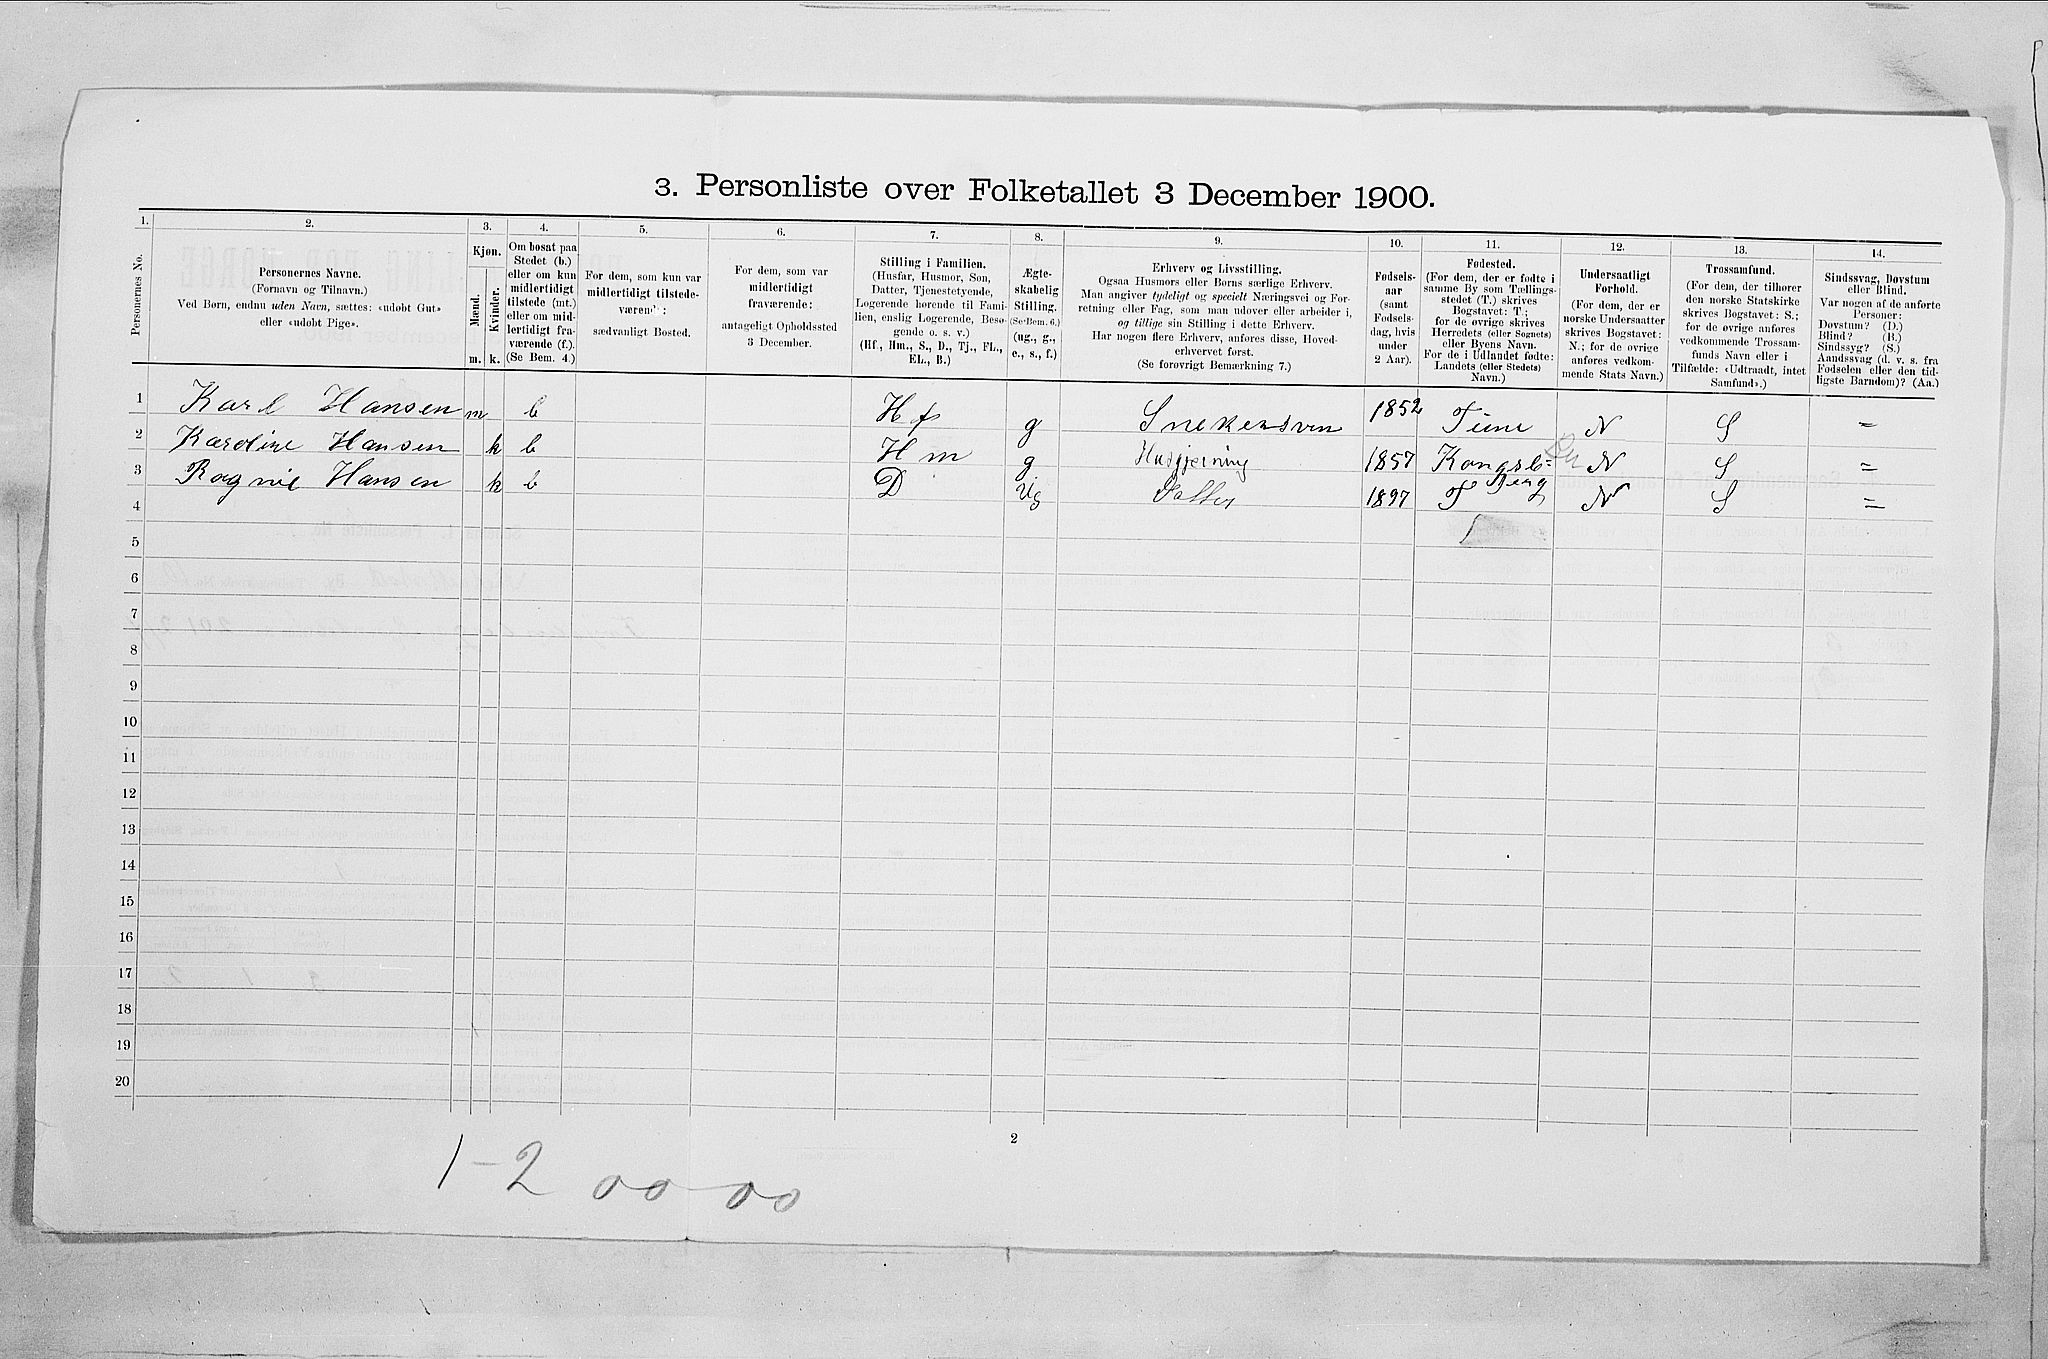 3. Personliste over Folketallet 3 December 1900.
1. 2. 3. 4. 5. 6. 7. 8. 9. 10. 11. 12. 13. 14.
Personernes No.
Personernes Navne.
(Fornavn og Tilnavn.)
Ved Børn, endnu uden Navn, sættes: «udøbt Gut»
eller «udøbt Pige».
Kjøn.
Mænd.
Kvinder.
m. k.
Om bosat paa
Stedet (b.)
eller om kun
midlertidigt
tilstede (mt.)
eller om mid-
lertidigt fra-
værende (f.).
(Se Bem. 4.)
For dem, som kun var
midlertidigt tilstede-
værende:
sædvanligt Bosted.
For dem, som var
midlertidigt
fraværende:
antageligt Opholdssted
3 December.
Stilling i Familien.
(Husfar, Husmor, Søn,
Datter, Tjenestetyende,
Logerende hørende til Fami-
lien, enslig Logerende, Besø-
gende o. s. v.)
(Hf., Hm., S., D., Tj., FL.,
EL., B.)
Ægte-
skabelig
Stilling.
(Se Bem. 6.)
(ug., g.,
e., s., f.)
Erhverv og Livsstilling.
Ogsaa Husmors eller Børns særlige Erhverv.
Man angiver tydeligt og specielt Næringsvei og For-
retning eller Fag, som man udøver eller arbeider i,
og tillige sin Stilling i dette Erhverv.
Har nogen flere Erhverv, anføres disse, Hoved-
erhvervet først.
(Se forøvrigt Bemærkning 7.)
Fødsels-
aar
(samt
Fødsels-
dag, hvis
under
2 Aar).
Fødested.
(For dem, der er fødte i
samme By som Tællings-
stedet (T.) skrives
Bogstavet: T.;
for de øvrige skrives
Herredets (eller Sognets)
eller Byens Navn.
For de i Udlandet fødte:
Landets (eller Stedets)
Navn.)
Undersaatligt
Forhold.
(For dem, der er
norske Undersaatter
skrives Bogstavet:
N.; for de øvrige
anføres vedkom-
mende Stats Navn.)
Trossamfund.
(For dem, der tilhører
den norske Statskirke
skrives Bogstavet: S.;
for de øvrige anføres
vedkommende Trossam-
funds Navn eller i
Tilfælde: «Udtraadt, intet
Samfund».)
Sindssvag, Døvstum
eller Blind.
Var nogen af de anførte
Personer:
Døvstum? (D.)
Blind? (B.)
Sindssyg? (S.)
Aandssvag (d. v. s. fra
Fødselen eller den tid-
ligste Barndom)? (Aa.)
1 Karl Hansen m b Hf g Snekersven 1852 Tune N S =
2 Karoline Hansen k b Hm g Husgjerning 1857 Kongsb= berg N S =
3 Ragnil Hansen k b D Ug Datter 1897 T N S =
4
5
6
7
8
9
10
11
12
13
14
15
16
17
18
19
20
2
1-2 00 00